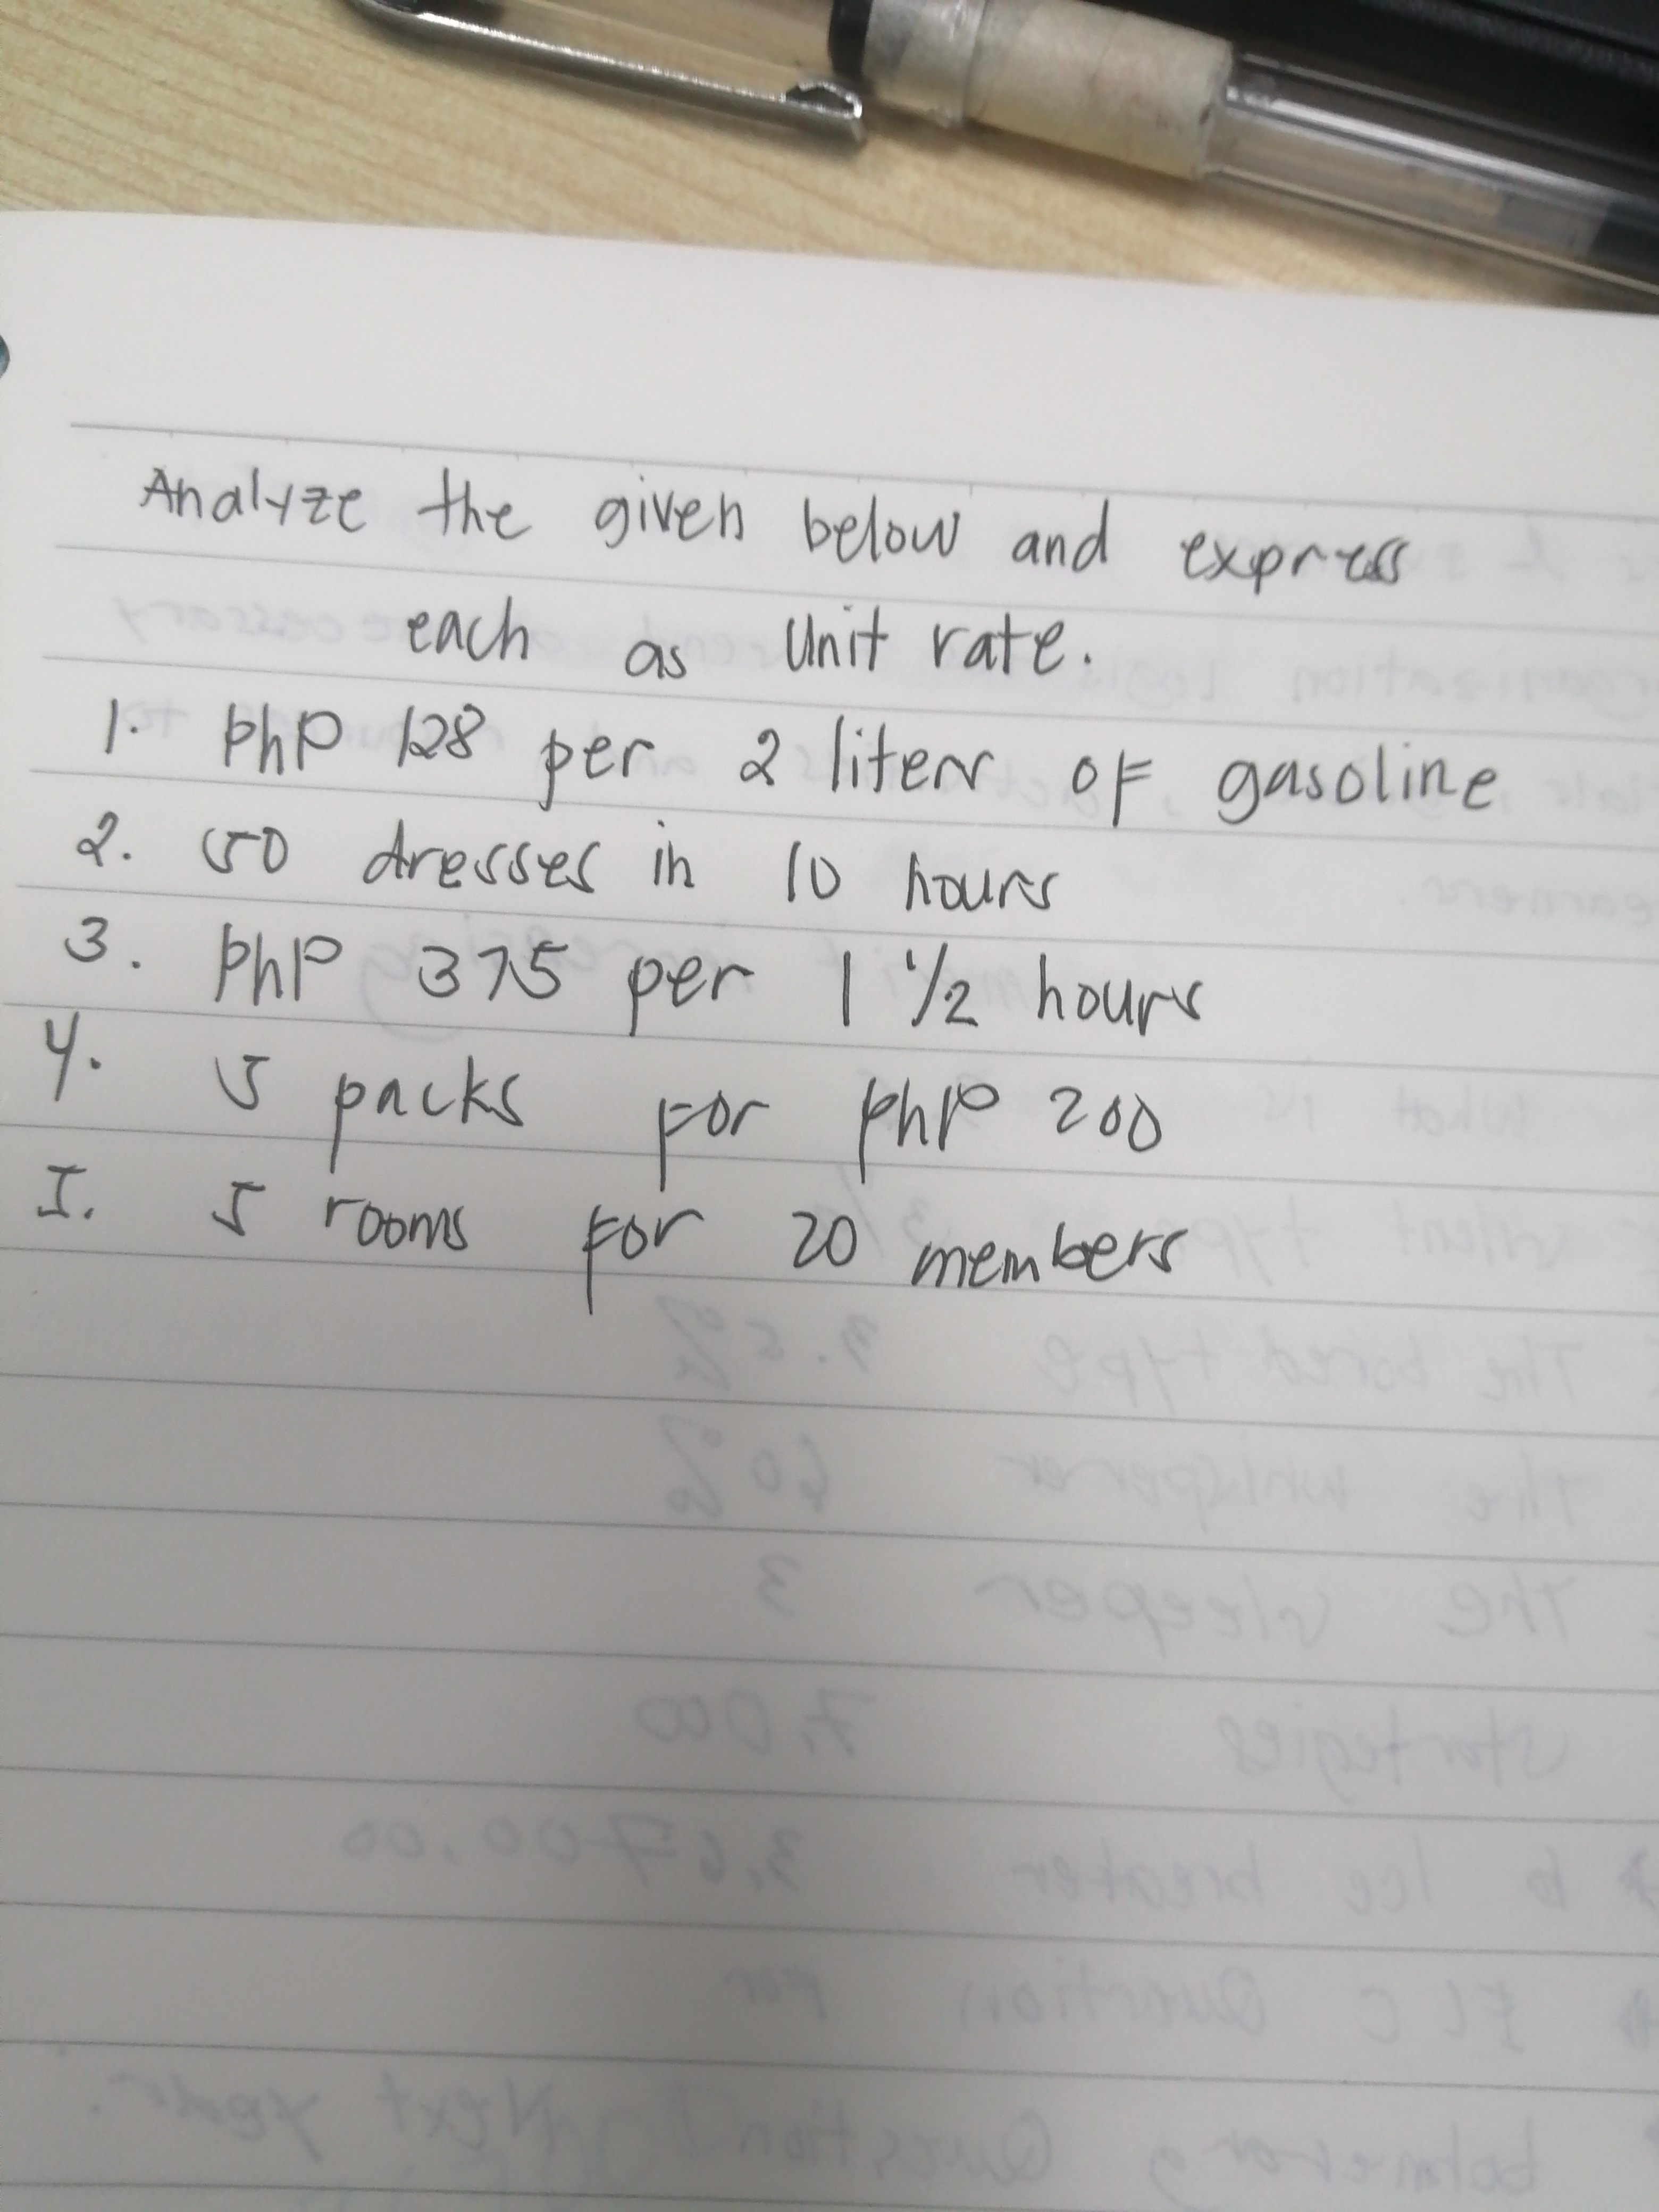 Analyze the given below and express
each as unit rate.
1. PhP 128 per 2 liters of gasoline
2. 50 dresses in 10 hours
3. PhP 375 per 1 1/2 hours
4. 5 packs for PhP 200
5. 5 rooms for 20 members